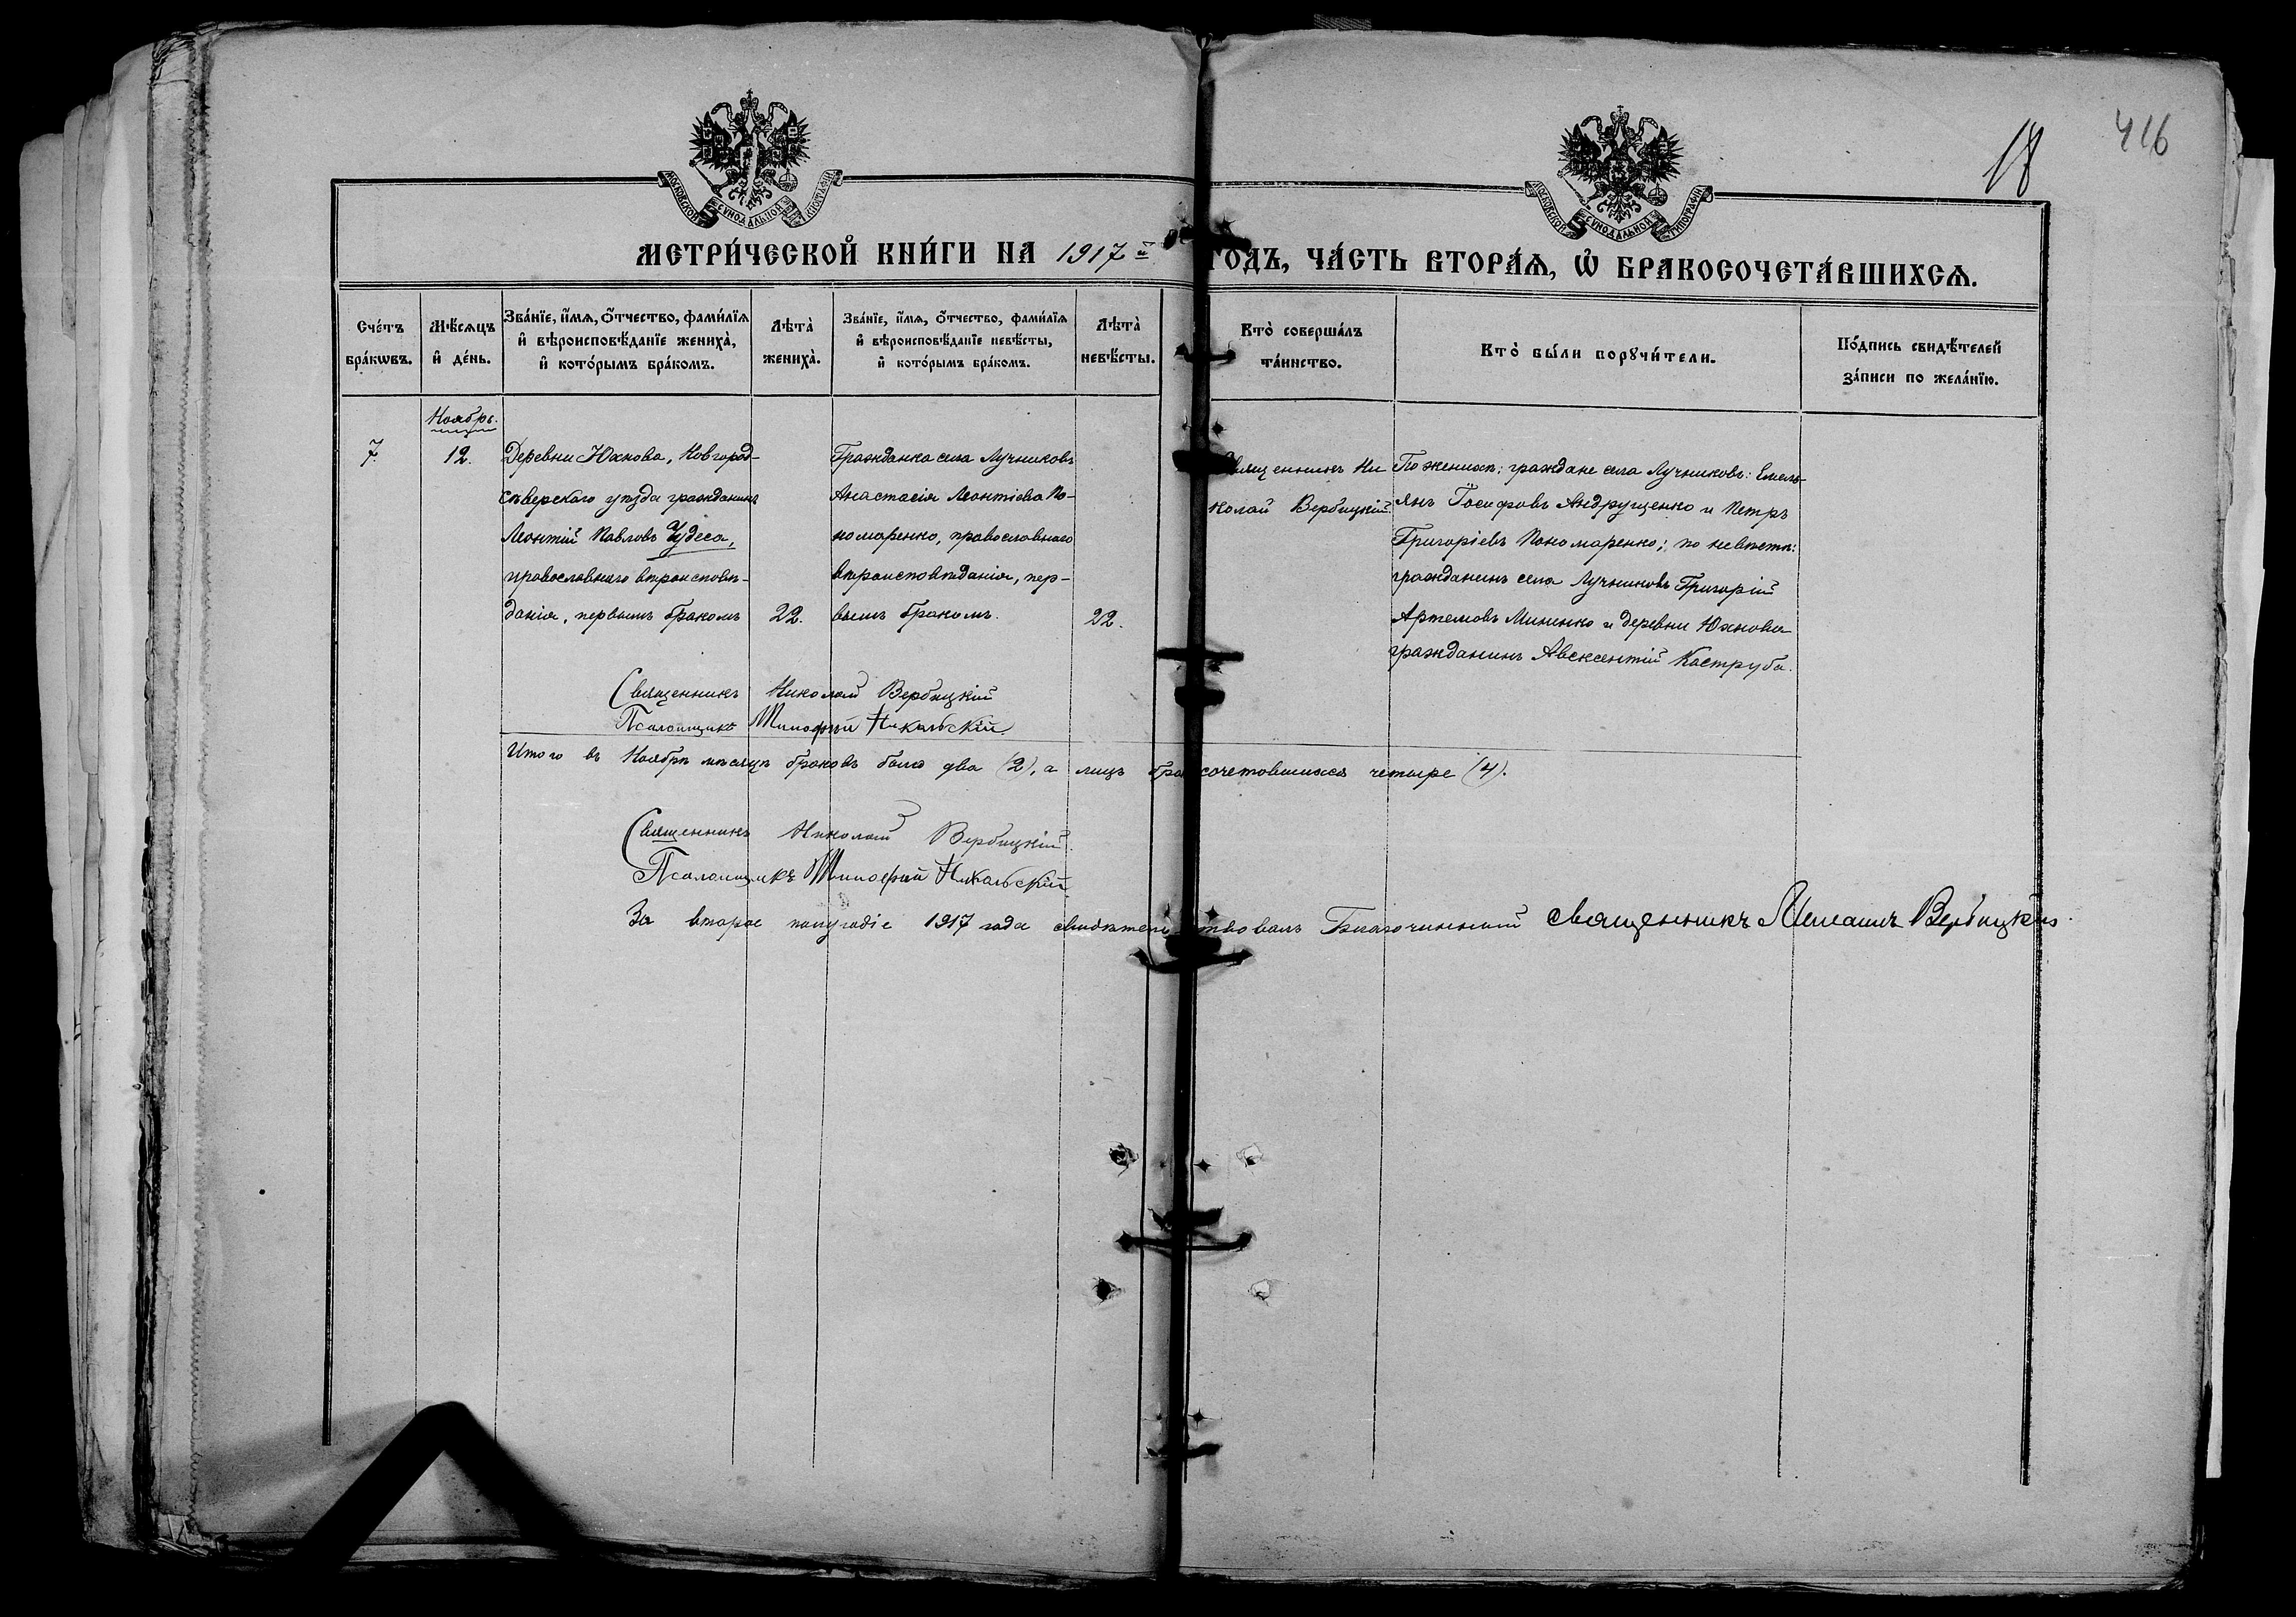 18
416
МОСКОВСКОЙ СѴНОДАЛЬНОЙ ТИПОГРАФІИ
МОСКОВСКОЙ СѴНОДАЛЬНОЙ ТИПОГРАФІИ
МЕТРИ́ЧЕСКОЙ КНИ́ГИ НА 1917 й ГОДЪ, ЧА́СТЬ ВТОРА́Ѧ, Ѽ БРАКОСОЧЕТА́ВШИХСѦ.
Сче́тъ
бра́кѡвъ.
Мѣ́сѧцъ
и҆ де́нь.
Зва́нїе, и҆́мѧ, ѻ҆́тчество, фами́лїѧ
и҆ вѣроисповѣ́данїе жениха̀,
и҆ кото́рымъ бра́комъ.
Лѣта̀
жениха̀.
Зва́нїе, и҆́мѧ, ѻ҆́тчество, фами́лїѧ
и҆ вѣроисповѣ́данїе невѣ́сты,
и҆ кото́рымъ бра́комъ.
Лѣта̀
невѣ́сты.
Кто̀ соверша́лъ
та́инство.
Кто̀ бы́ли порꙋчи́тели.
По́дпись свидѣ́телей
за́писи по жела́нїю.
Ноябрь.
7.
12.
Деревни Юхнова, Новгород-
сѣверскаго уѣзда гражданинъ
Леонтій Павловъ Чудеса,
православнаго вѣроисповѣ-
данія, первымъ бракомъ
22.
Гражданка села Лучниковъ
Анастасія Леонтіева По-
номаренко, православнаго
вѣроисповѣданія, пер-
вымъ бракомъ.
22.
Священникъ Ни-
колай Вербицкій.
По женихѣ: граждане села Лучниковъ: Емель-
янъ Іосифовъ Андрущенко и Петръ
Григоріевъ Пономаренко; по невѣстѣ:
гражданинъ села Лучниковъ Григорій
Артемовъ Миненко и деревни Юхнова
гражданинъ Авксентій Каструба.
Священникъ Николай Вербицкій
Псаломщикъ Тимофей Никольскій.
Итого въ Ноябрѣ мѣсяцѣ браковъ было два (2), а лицъ бракосочетовшихся четыре (4).
Священникъ Николай Вербицкій.
Псаломщикъ Тимофей Никольскій
За второе полугодіе 1917 года свидѣтельствовалъ Благочинный священникъ Вербицкій.